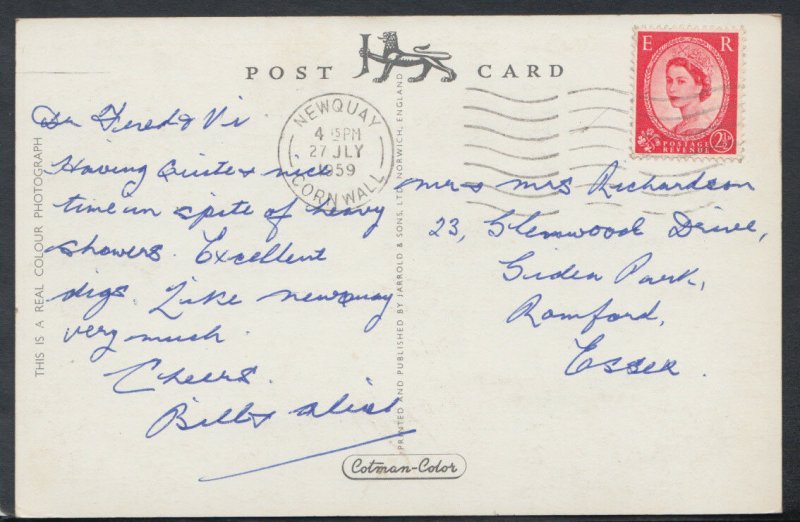 POST CARD
E R
POSTAGE
REVENUE
2½D
NEWQUAY
4 15PM
27 JLY
1959
CORNWALL
THIS IS A REAL COLOUR PHOTOGRAPH
Dr Fred & Vi
Having Quite a nice
time in spite of heavy
showers. Excellent
digs. Like newquay
very much.
Cheers.
Bill &
PRINTED AND PUBLISHED BY JARROLD & SONS, LTD. NORWICH, ENGLAND
mr & mrs Richardson
23, Glenwood Drive,
Gidea Park,
Romford,
Essex.
Cotman-Color